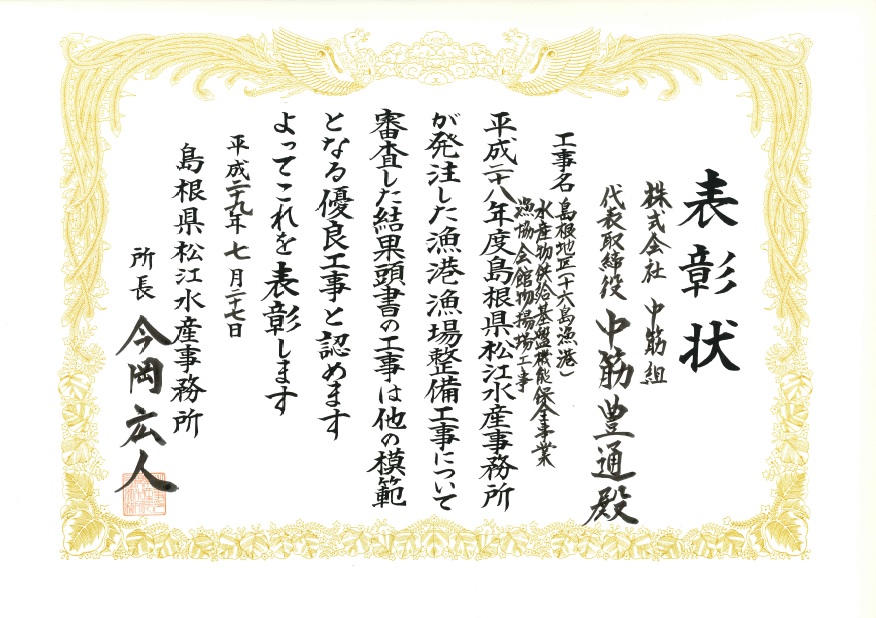 表彰状
株式会社 中筋組
代表取締役 中筋豊通殿
工事名 島根地区(十六島漁港)
水産物供給基盤機能保全事業
漁協会館物揚場工事
平成二十八年度島根県松江水産事務所
が発注した漁港漁場整備工事について
審査した結果頭書の工事は他の模範
となる優良工事と認めます
よってこれを表彰します
平成二十九年七月二十七日
島根県松江水産事務所
所長 今岡広人